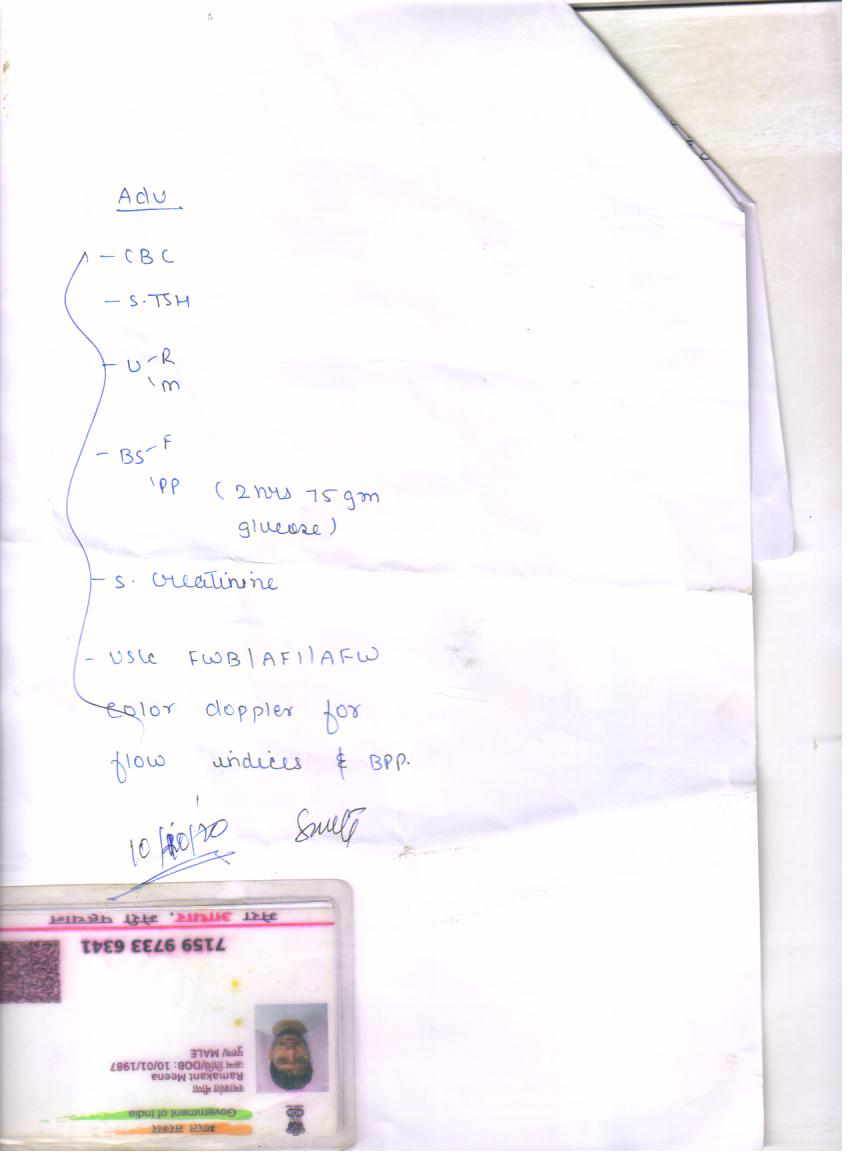 Adv
- CBC
- S. TSH
- U - R
\ m
- BS - F
\ PP (2 hrs 75 gm
glucose)
- S. Creatinine
- USG FWB/AFI/AFW
color doppler for
flow indices & BPP.
भारत सरकार
Government of India
रमाकांत मीणा
Ramakant Meena
जन्म तिथि/DOB: 10/01/1987
पुरुष/ MALE
7159 9733 6341
मेरा आधार, मेरी पहचान